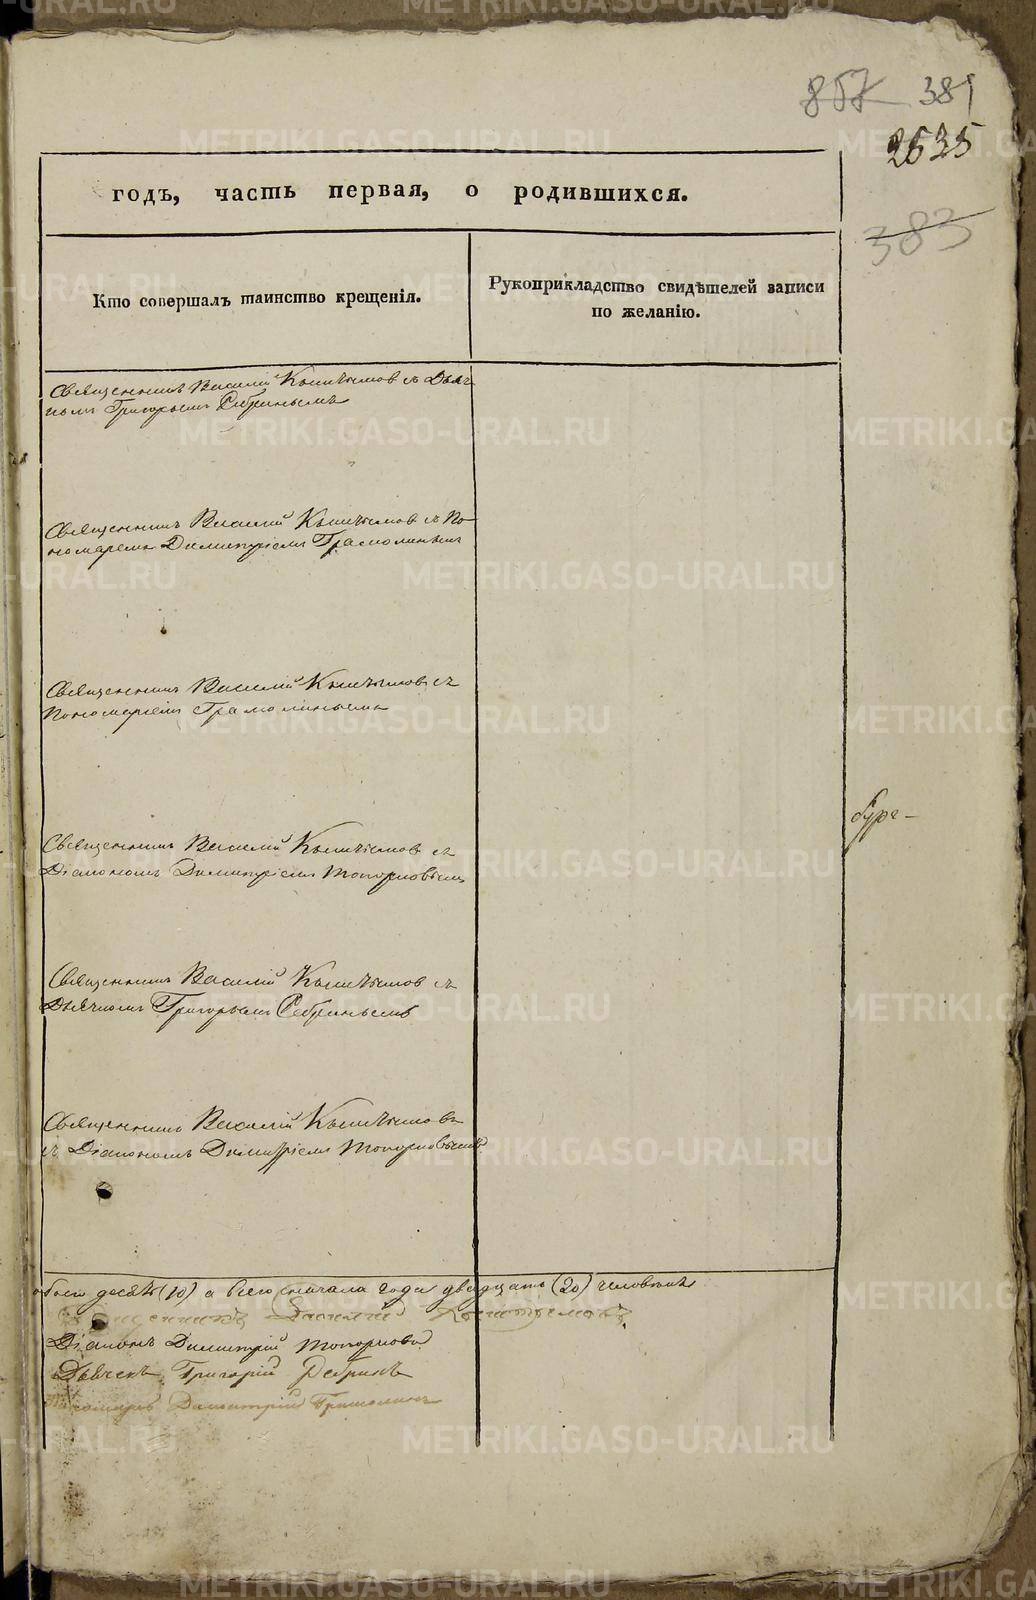 857 381
2535
383
годъ, часть первая, о родившихся.
Кто совершалъ таинство крещенія.
Рукоприкладство свидѣтелей записи
по желанію.
Священникъ Василій Кыштымов съ Дьяч-
комъ Григорьемъ Ребринымъ
Священникъ Василій Кыштымов съ По-
номаремъ Димитріемъ Грамолинымъ
Священникъ Василій Кыштымов съ
Пономаремъ Грамолинымъ
Священникъ Василій Кыштымов съ
Діакономъ Димитріемъ Топорковымъ
буре-
Священникъ Василій Кыштымов съ
Дьячкомъ Григорьемъ Ребринымъ
Священникъ Василій Кыштымовъ
съ Діакономъ Димитріемъ Топорковымъ
обоего десять (10) а всего сначала года двадцать (20) человѣкъ
Священникъ Василий Кыштымовъ
Діаконъ Димитрій Топорковъ
Дьячекъ Григорій Ребринъ
Пономарь Димитрій Грамолинъ
METRIKI.GASO-URAL.RU